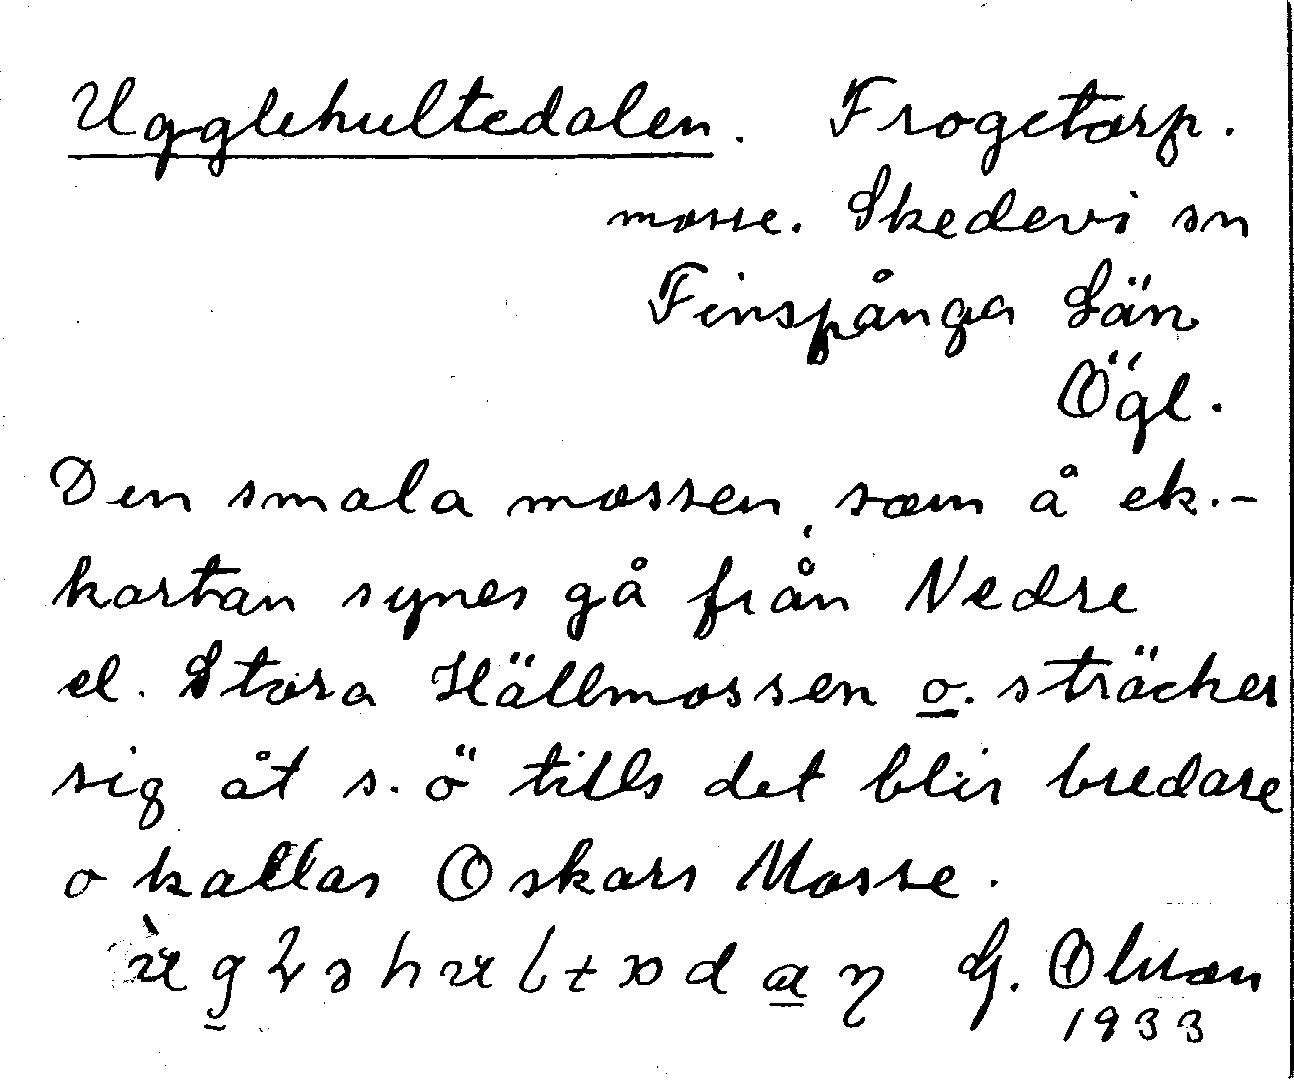 Ugglehultedalen. Frogetorp.
mosse. Skedevi sn
Finspånga Län
Ögl.
Den smala mossen, som å ek.-
kartan synes gå från Nedre
el. Stora Hällmossen o. sträcker
sig åt s. ö tills det blir bredare
o kallas Oskars Mosse.
G. Olsson
1933